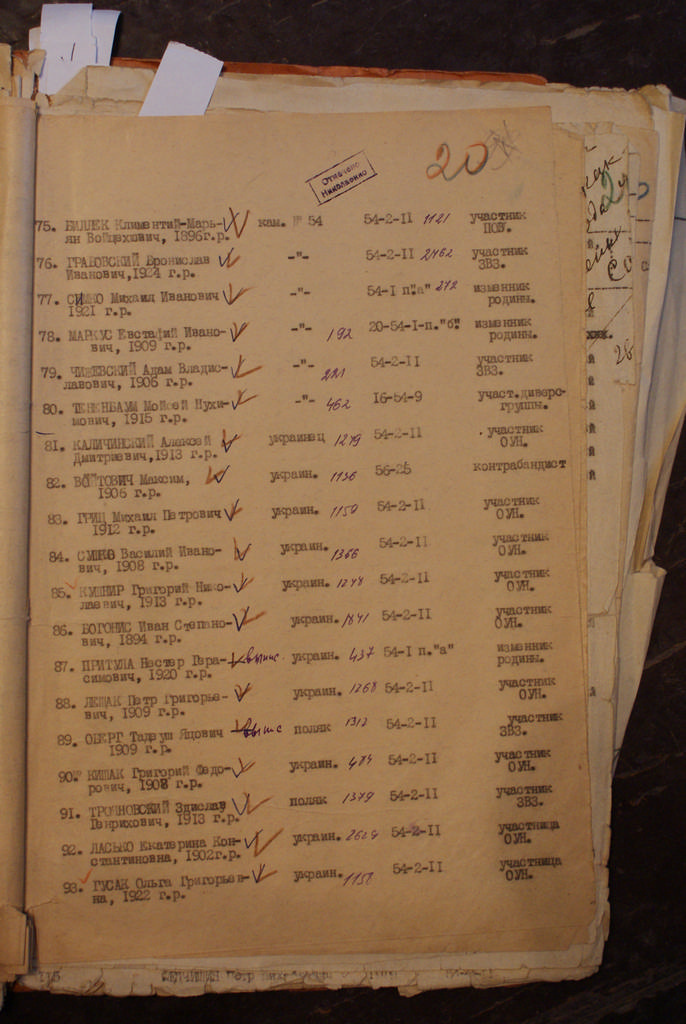 20
Отмечено
75. БИЛЛЕК Климентий-Марь- кам. № 54 54-2-II 1121 участник
ян Войцехович, 1896г.р. ПОВ.
76. ГРАБОВСКИЙ Бронислав -"- 54-2-II 2462 участник
Иванович, 1924 г.р. ЗВЗ.
77. СИМКО Михаил Иванович -"- 54-I п."а" 272 изменник
1921 г.р. родины.
78. МАРКУС Евстафий Ивано- -"- 192 20-54-I-п."б" изменник
вич, 1909 г.р. родины.
79. ЧИЖЕВСКИЙ Адам Владис- -"- 221 54-2-II участник
лавович, 1906 г.р. ЗВЗ.
80. ТЕНЕНБАУМ Мойсей Нухи- -"- 462 16-54-9 участ.диверс-
мович, 1915 г.р. группы.
81. КАЛИЧИНСКИЙ Алексей украинец 1279 54-2-II участник
Дмитриевич,1913 г.р. ОУН.
82. ВОЙТОВИЧ Максим, украин. 1136 56-25 контрабандист
1906 г.р.
83. ГРИЦ Михаил Петрович украин. 1150 54-2-II участник
1912 г.р. ОУН.
84. СУШКО Василий Ивано- украин. 1366 54-2-II участник
вич, 1908 г.р. ОУН.
85. КУШНИР Григорий Нико- украин. 1248 54-2-II участник
лаевич, 1913 г.р. ОУН.
86. БОГОНИС Иван Степано- украин. 1841 54-2-II участник
вич, 1894 г.р. ОУН.
87. ПРИТУЛА Нестер Гера- выпис. украин. 437 54-I п."а" изменник
симович, 1920 г.р. родины.
88. ЛЕЩАК Петр Григорье- украин. 1268 54-2-II участник
вич, 1909 г.р. ОУН.
89. ОБЕРГ Тадеуш Яцович выпис поляк 1312 54-2-II участник
1909 г.р. ЗВЗ.
90. КИШАК Григорий Федо- украин. 484 54-2-II участник
рович, 1908 г.р. ОУН.
91. ТРОЯНОВСКИЙ Здислав поляк 1379 54-2-II участник
Генрихович, 1913 г.р. ЗВЗ.
92. ЛАСЬКО Екатерина Кон- украин. 2624 54-2-II участница
стантиновна, 1902г.р. ОУН.
93. ГУСАК Ольга Григорьев- украин. 1150 54-2-II участница
на, 1922 г.р. ОУН.